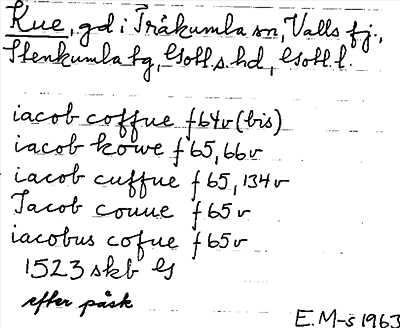 Kue, gd i Träkumla sn, Valls tj.,
Stenkumla tg, Gotl. s. hd, Gotl. l.
iacob coffue f 64v (bis)
iacob kowe f 65, 66v
iacob cuffue f 65, 134v
Jacob couue f 65v
iacobus cofue f 65v
1523 skb G
efter påsk
E. M-s 1963